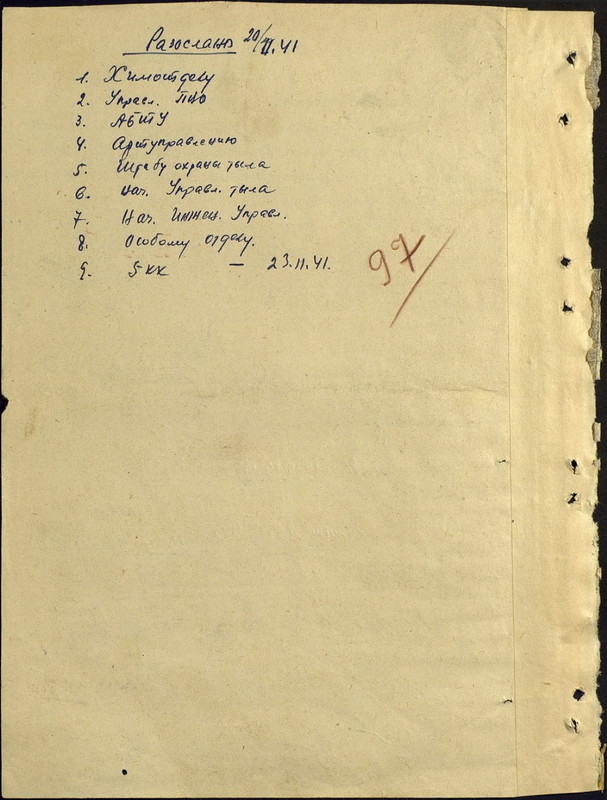 Разослано 20/II.41
1. Химотделу
2. Управл. ПВО
3. АБТУ
4. Артуправлению
5. Штабу охраны тыла
6. нач. Управл. тыла
7. Нач. Инжен. Управл.
8. Особому отделу.
9. 5 КК — 23.11.41.
97